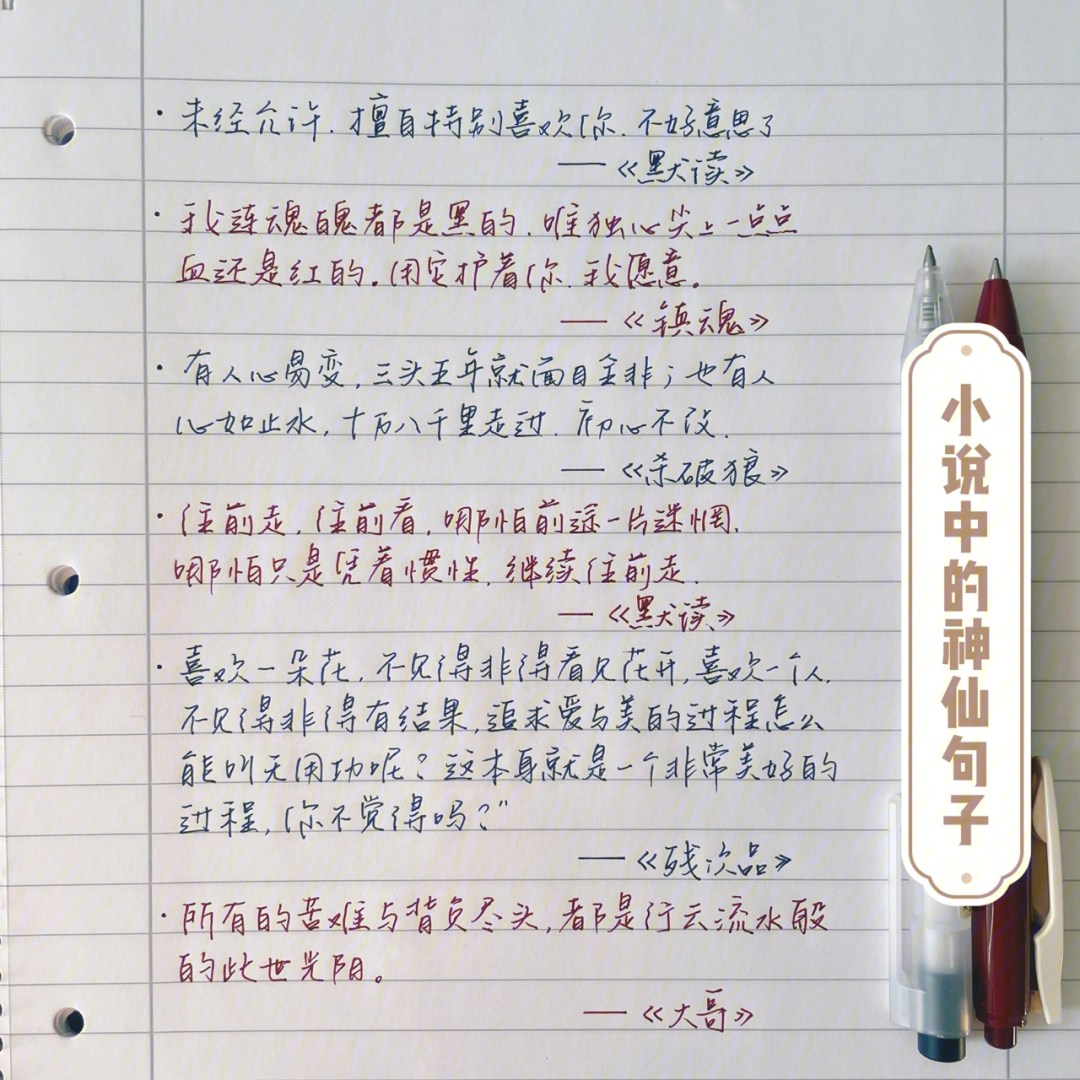 · 未经允许.擅自特别喜欢你.不好意思了
——《默读》
· 我连魂魄都是黑的.唯独心尖上一点点
血还是红的。用它护着你.我愿意。
——《镇魂》
· 有人心易变,三头五年就面目全非;也有人
心如止水,十万八千里走过.初心不改.
——《杀破狼》
· 往前走,往前看,哪怕前途一片迷惘.
哪怕只是凭着惯性,继续往前走.
——《默读》
· 喜欢一朵花,不见得非得看见花开,喜欢一个人,
不见得非得有结果,追求爱与美的过程怎么
能叫无用功呢?这本身就是一个非常美好的
过程,你不觉得吗?”
——《残次品》
· 所有的苦难与背负尽头,都是行云流水般
的此世光阴。
——《大哥》
小说中的神仙句子